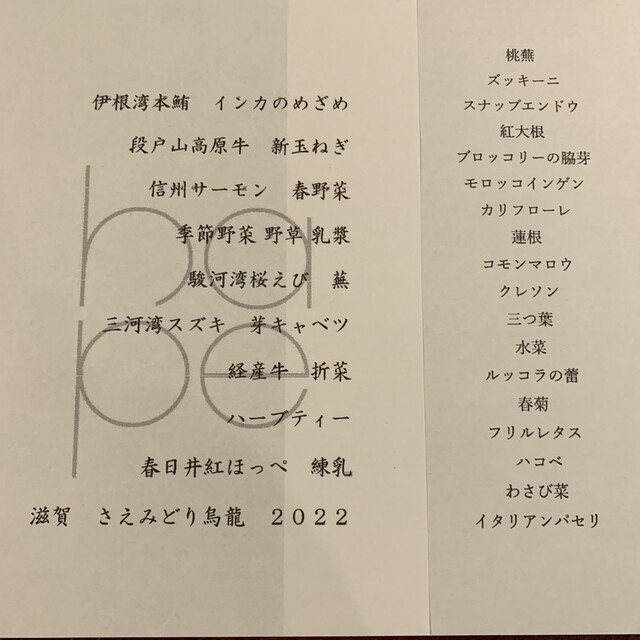 伊根湾本鮪　インカのめざめ
段戸山高原牛　新玉ねぎ
信州サーモン　春野菜
季節野菜 野草 乳漿
駿河湾桜えび　蕪
三河湾スズキ　芽キャベツ
経産牛　折菜
ハーブティー
春日井紅ほっぺ　練乳
滋賀　さえみどり烏龍　２０２２
ha
pe
桃蕪
ズッキーニ
スナップエンドウ
紅大根
ブロッコリーの脇芽
モロッコインゲン
カリフローレ
蓮根
コモンマロウ
クレソン
三つ葉
水菜
ルッコラの蕾
春菊
フリルレタス
ハコベ
わさび菜
イタリアンパセリ